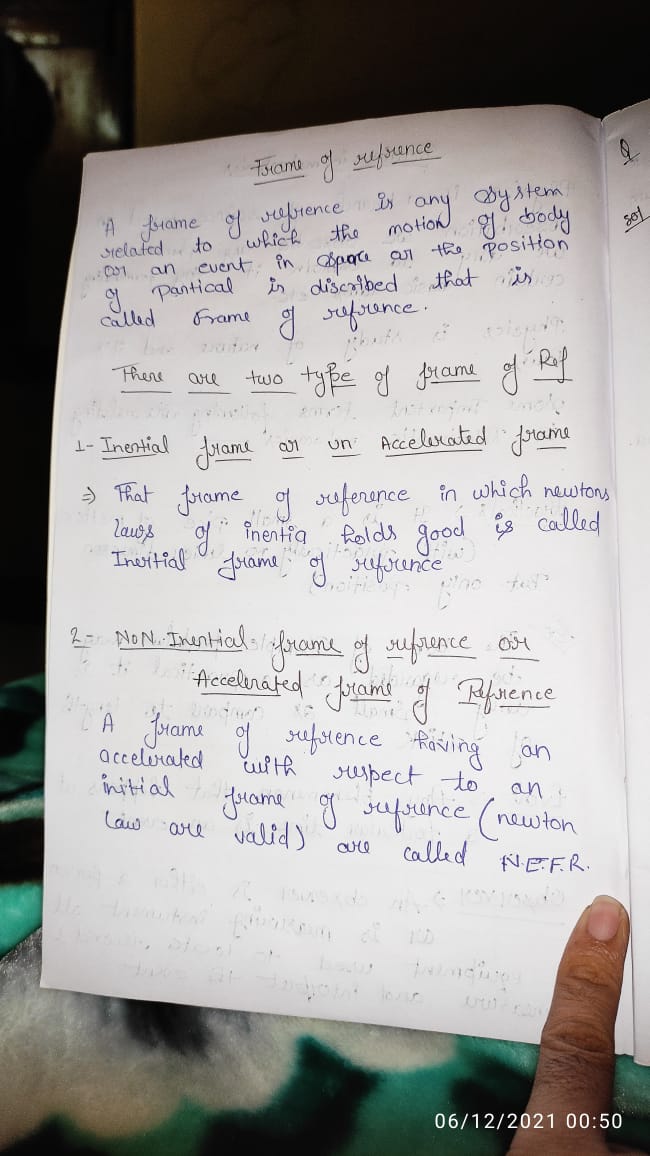 Frame of refrence
A frame of refrence is any System
related to which the motion of body
or an event in space or the position
of Partical is discribed that is
called Frame of refrence.
There are two type of frame of Ref
1- Inertial frame or un Accelerated frame
⇒ That frame of reference in which newtons
laws of inertia holds good is called
Inertial frame of refrence
2- NON-Inertial frame of refrence or
Accelerated frame of Refrence
A frame of refrence having an
accelerated with respect to an
initial frame of refrence (newton
law are valid) are called N.E.F.R.
Q
sol
06/12/2021 00:50